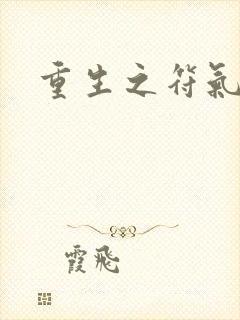 重生之符氣
霞飛